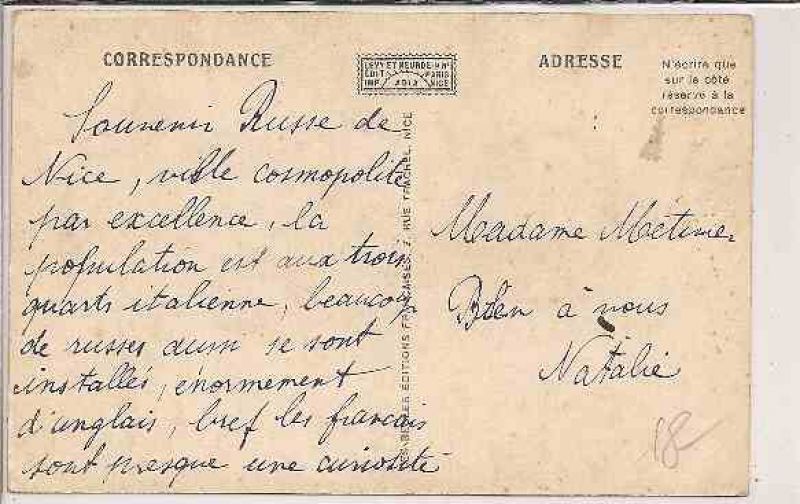 CORRESPONDANCE
LEVY ET NEURDEIN RIS
EDIT PARIS
IMP ADIA NICE
ADRESSE
N'écrire que
sur le côté
réservé à la
correspondance
Souvenir Russe de
Nice, ville cosmopolite
par excellence, la
population est aux trois
quarts italienne, beaucoup
de russes aussi se sont
installés, énormement
d'anglais, bref les français
sont presque une curiosité
ÉDITIONS FRANÇAISES, RUE TRACHEL, NICE
Madame Métivier
Bien à vous
Natalie
18